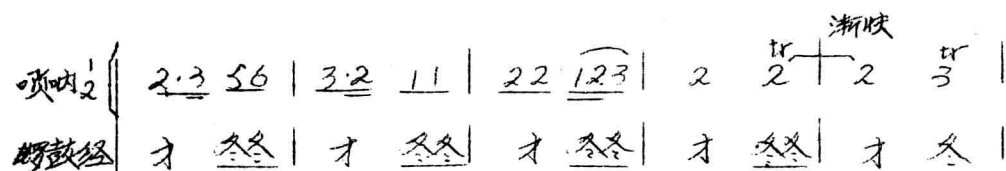 渐快
tr tr
唢呐 1/2 2·3 56 | 3·2 11 | 22 123 | 2 2 | 2 3 |
锣鼓经 才 冬冬 | 才 冬冬 | 才 冬冬 | 才 冬冬 | 才 冬 |